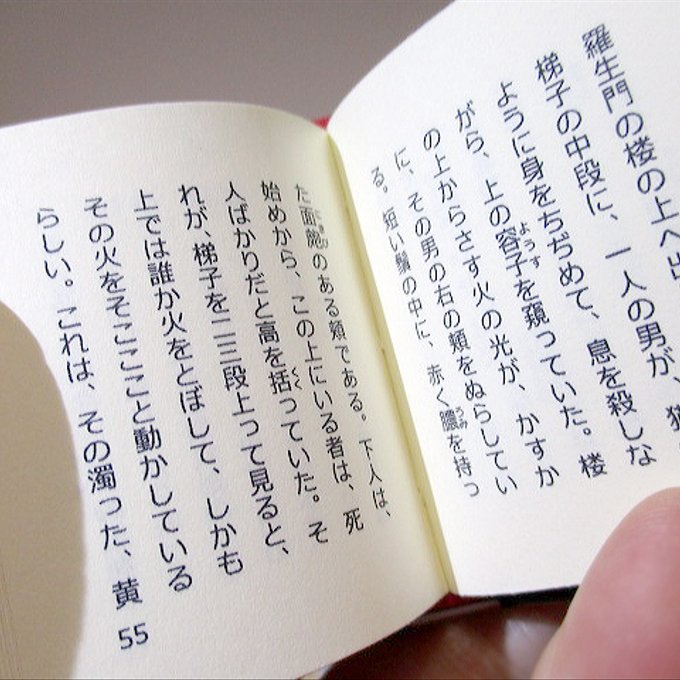 羅生門の楼の上へ出
梯子の中段に、一人の男が、猫
ように身をちぢめて、息を殺しな
がら、上の容子を窺っていた。楼
の上からさす火の光が、かすか
に、その男の右の頬をぬらしてい
る。短い鬚の中に、赤く膿を持っ
た面皰のある頬である。下人は、
始めから、この上にいる者は、死
人ばかりだと高を括っていた。そ
れが、梯子を二三段上って見ると、
上では誰か火をとぼして、しかも
その火をそこここと動かしている
らしい。これは、その濁った、黄
55